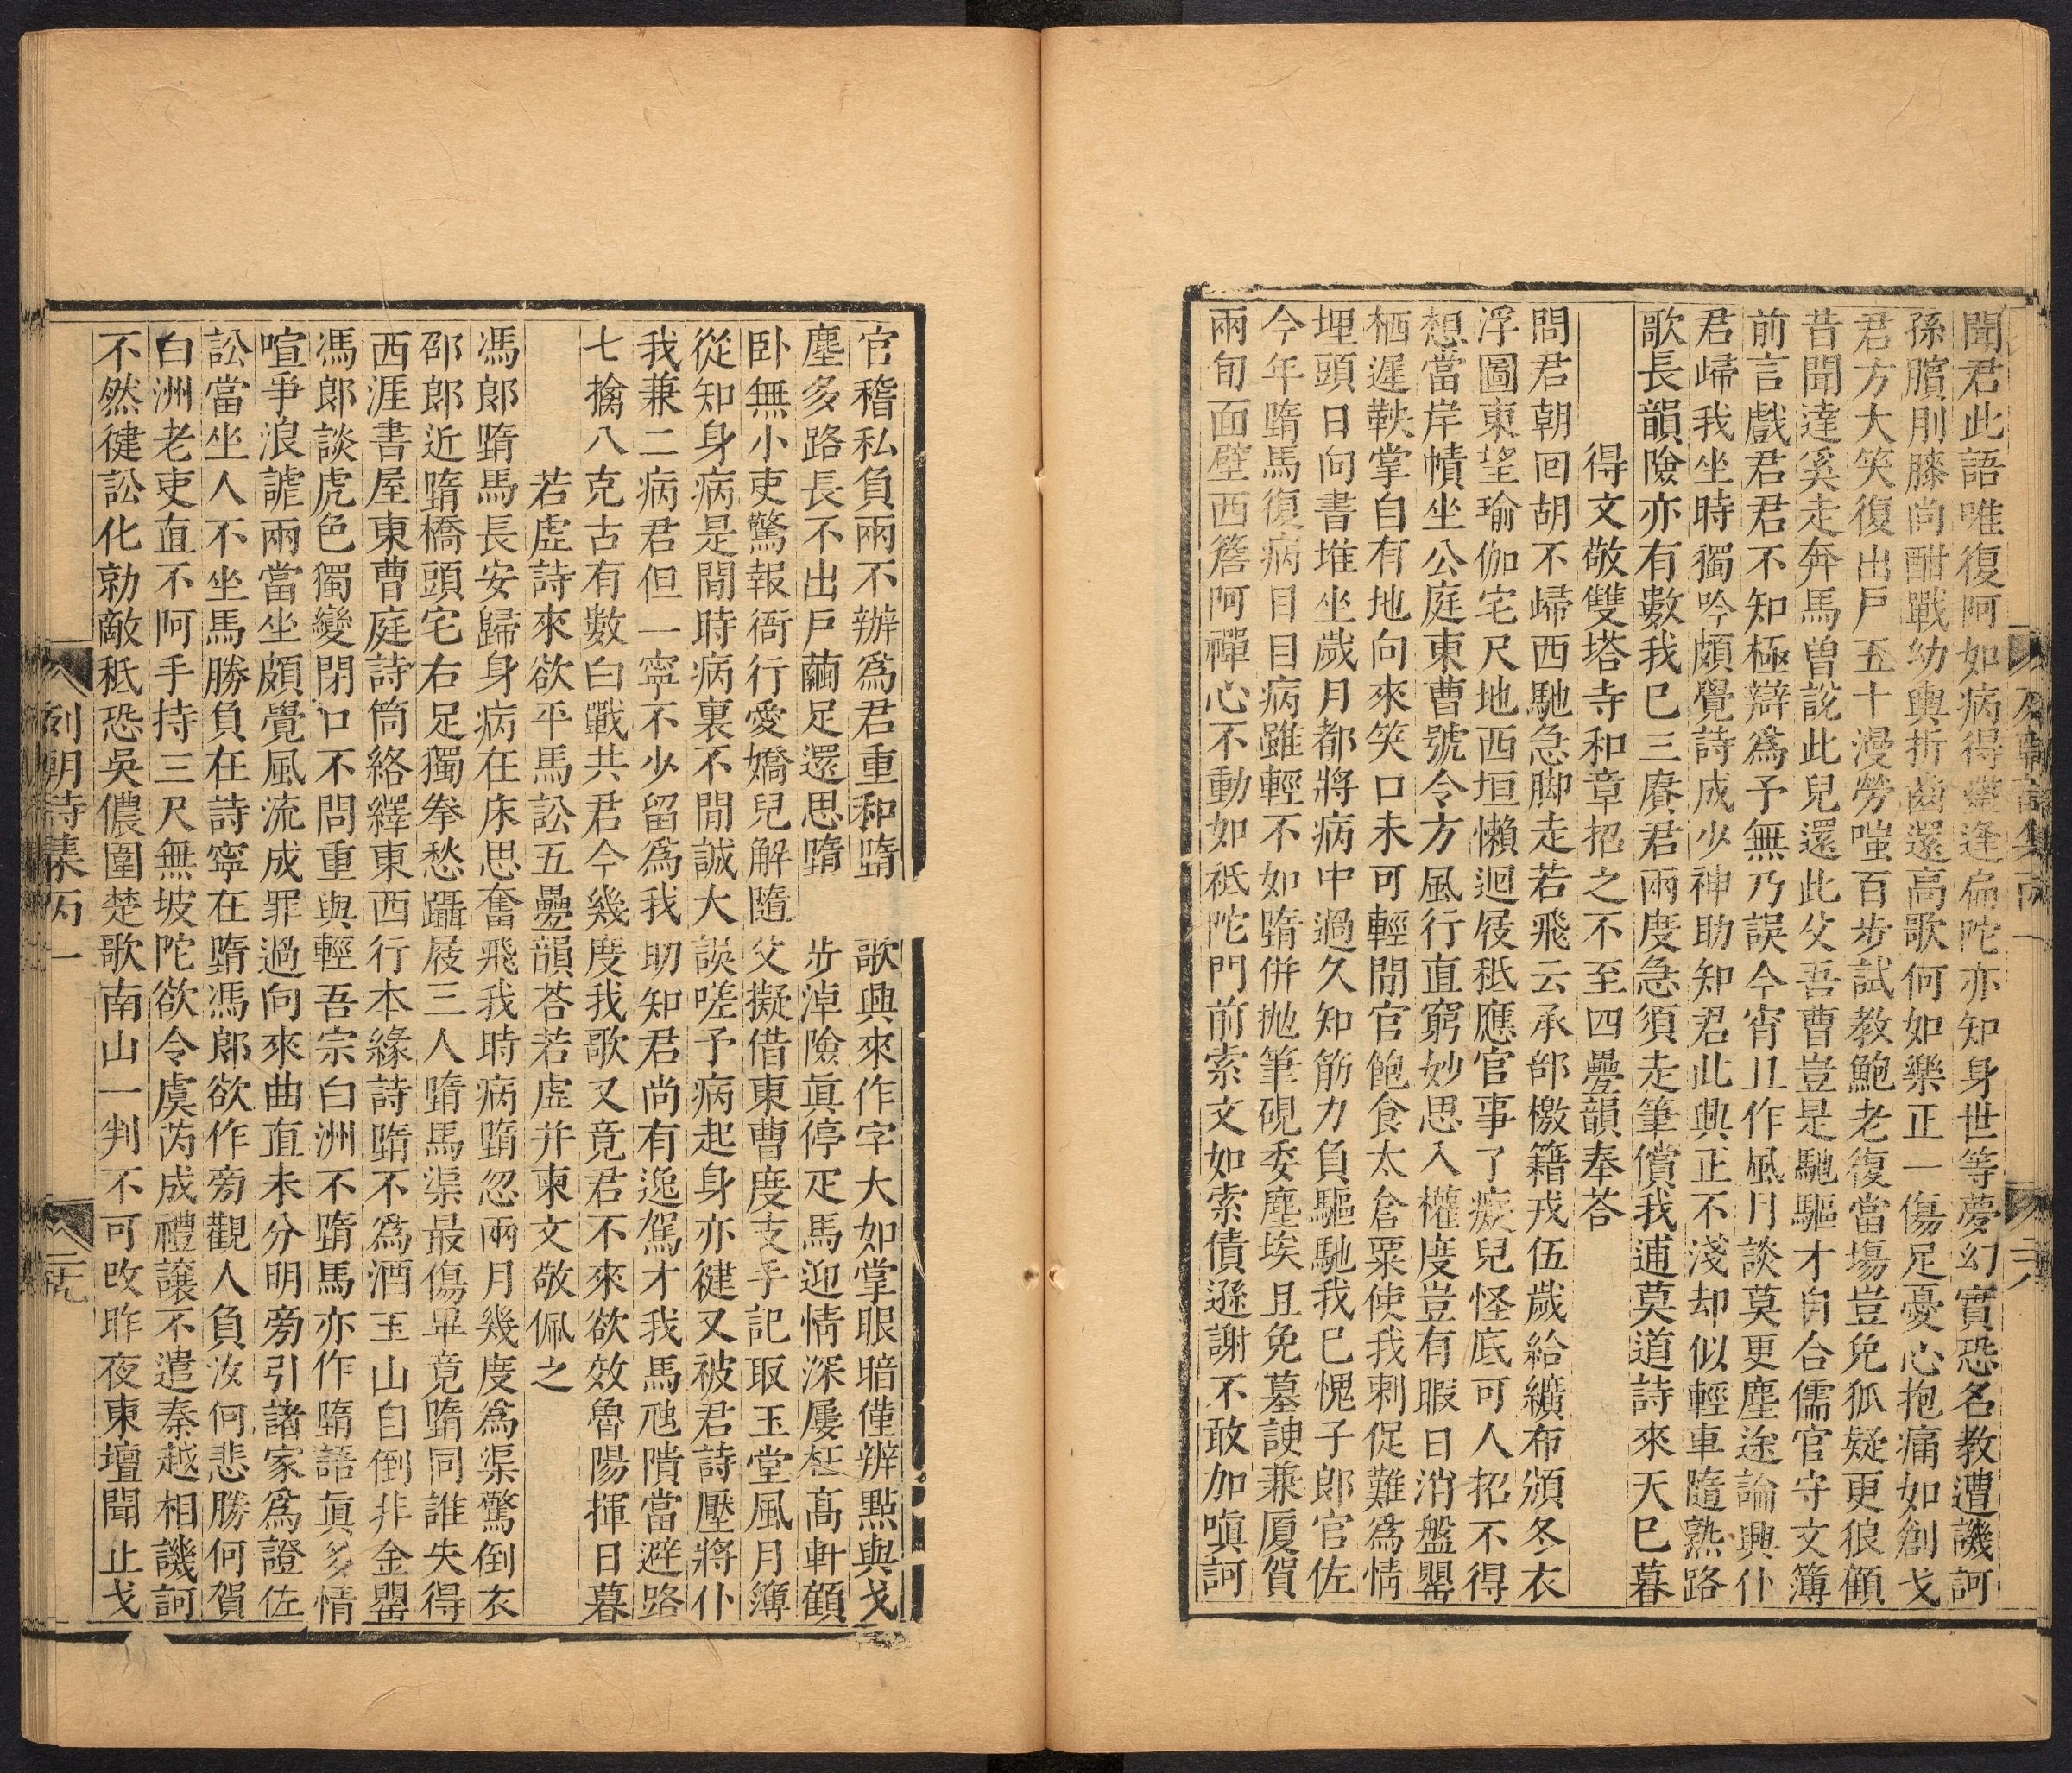 聞君此語唯復阿如病得逢扁陀亦知身世等夢幻實恐名教遭譏訶
孫臏刖膝尚酣戰幼輿折齒還高歌何如樂正一傷足憂心抱痛如創戈
君方大笑復出戶五十漫勞嗤百步試教鮑老復當場豈免狐疑更狼顧
昔聞達奚走奔馬曾說此兒還此父吾曹豈是馳驅才自合儒官守文簿
前言戲君君不知極辯爲予無乃誤今宵且作風月談莫更塵途論興仆
君歸我坐時獨吟頗覺詩成少神助知君此興正不淺却似輕車隨熟路
歌長韻險亦有數我已三賡君兩度急須走筆償我逋莫道詩來天已暮
得文敬雙塔寺和章招之不至四疊韻奉荅
問君朝回胡不歸西馳急脚走若飛云承部檄籍戎伍歲給纊布頒冬衣
浮圖東望瑜伽宅尺地西垣懶迴屐秪應官事了癡兒怪底可人招不得
想當岸幘坐公庭東曹號令方風行直窮妙思入權度豈有暇日消盤罌
栖遲鞅掌自有地向來笑口未可輕閒官飽食太倉粟使我刺促難為情
埋頭日向書堆坐歲月都將病中過久知筋力負驅馳我已愧子郎官佐
今年墮馬復病目目病雖輕不如墮併拋筆硯委塵埃且免墓諛兼厦賀
兩旬面壁西簷阿禪心不動如祇陀門前索文如索債遜謝不敢加嗔訶
官稽私負兩不辦爲君重和墮歌興來作字大如掌眼暗僅辨點與戈
塵多路長不出戶繭足還思墮步淖險眞停疋馬迎情深屢枉高軒顧
卧無小吏驚報衙行愛嬌兒解隨父擬借東曹度支手記取玉堂風月簿
從知身病是閒時病裏不閒誠大誤嗟予病起身亦徤又被君詩壓將仆
我兼二病君但一寧不少留爲我助知君尚有逸駕才我馬虺隤當避路
七擒八克古有數白戰共君今幾度我歌又竟君不來欲效魯陽揮日暮
若虛詩來欲平馬訟五疊韻荅若虛并柬文敬佩之
馮郎墮馬長安歸身病在床思奮飛我時病墮忽兩月幾度為渠驚倒衣
邵郎近墮橋頭宅右足獨拳愁躡屐三人墮馬渠最傷畢竟墮同誰失得
西涯書屋東曹庭詩筒絡繹東西行本緣詩墮不為酒玉山自倒非金罌
馮郎談虎色獨變閉口不問重與輕吾宗白洲不墮馬亦作墮語眞多情
喧爭浪謔兩當坐頗覺風流成罪過向來曲直未分明旁引諸家爲證佐
訟當坐人不坐馬勝負在詩寧在墮馮郎欲作旁觀人負汝何悲勝何賀
白洲老吏直不阿手持三尺無坡陀欲令虞芮成禮讓不遣秦越相譏訶
不然徤訟化勍敵秪恐吳儂圍楚歌南山一判不可改昨夜東壇聞止戈
列朝詩集丙一
二十九